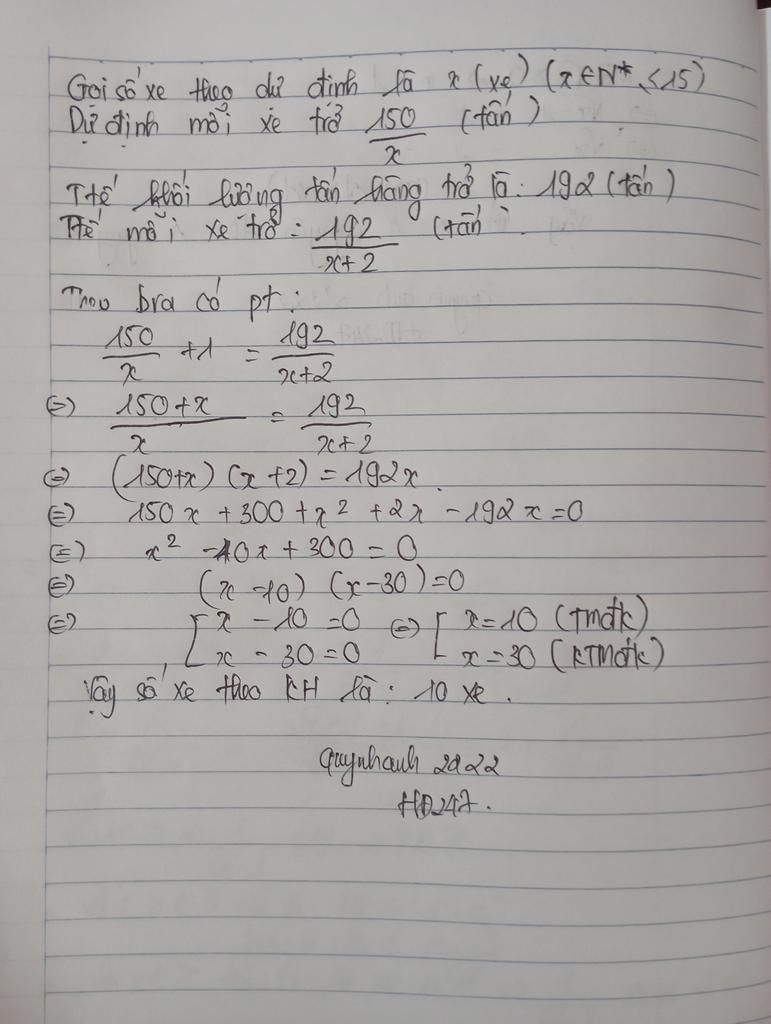 Gọi số xe theo dự định là x (xe) (x ∈ N*, ≤15)
Dự định mỗi xe trở 150/x (tấn)
Ttế khối lượng tấn hàng trở là: 192 (tấn)
Ttế mỗi xe trở: 192/(x+2) (tấn)
Theo bra có pt:
150/x + 1 = 192/(x+2)
⇔ (150+x)/x = 192/(x+2)
⇔ (150+x) (x+2) = 192x.
⇔ 150x + 300 + x² + 2x - 192x = 0
⇔ x² - 40x + 300 = 0
⇔ (x - 10) (x - 30) = 0
⇔ [ x - 10 = 0 ⇔ [ x = 10 (Tmđk)
x - 30 = 0 x = 30 (KTMđk)
Vậy số xe theo KH là: 10 xe.
Quynhanh 2d22
HĐ247.